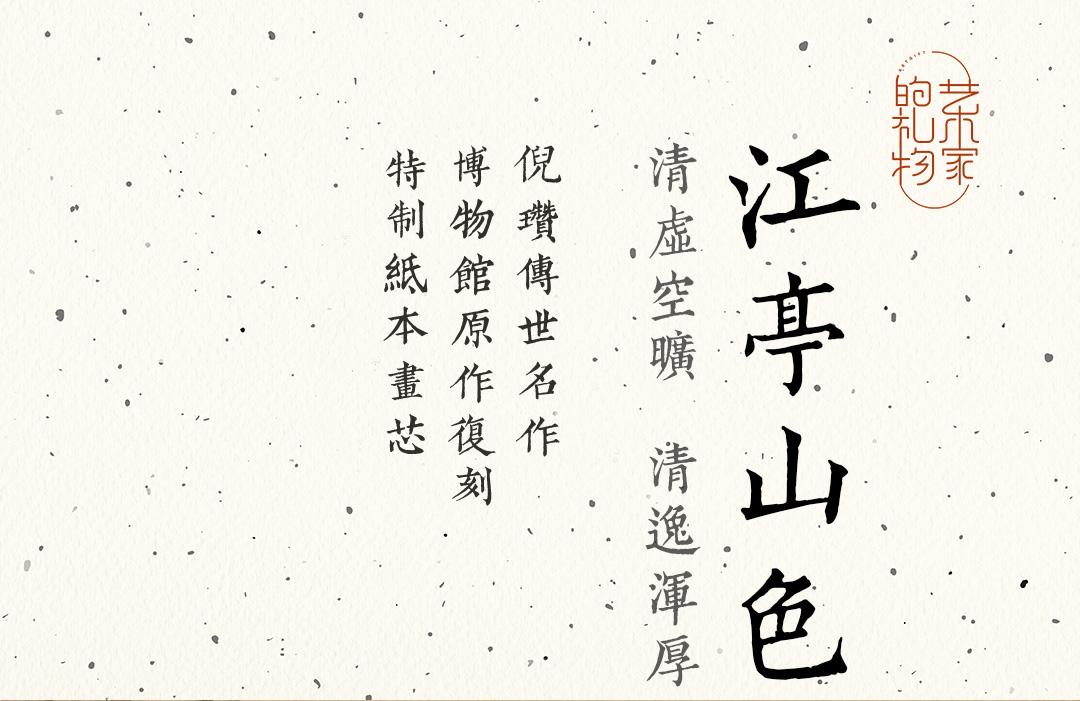 艺家
的礼物
江亭山色
清虛空曠 清逸渾厚
倪瓚傳世名作
博物館原作復刻
特制紙本畫芯